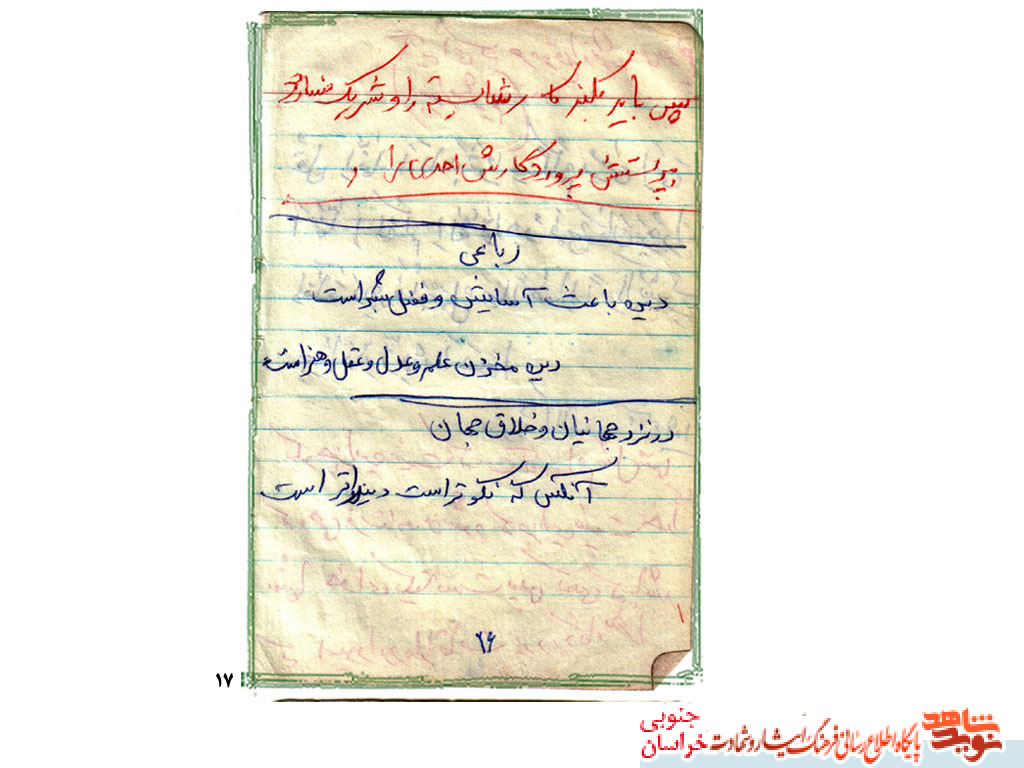 پس باید بکند کار شایسته را و شریک نسازد
به پرستش پروردگارش احدی را و
رباعی
دین باعث آسایش و فضل بشر است
دین مخزن علم و عدل و عقل و هنر است
در نزد جهانیان و خلاق جهان
آنکس که نکوتر است دیندارتر است
۲۶
۱۷
نوید شاهد
پایگاه اطلاع رسانی فرهنگ ایثار و شهادت
خراسان جنوبی